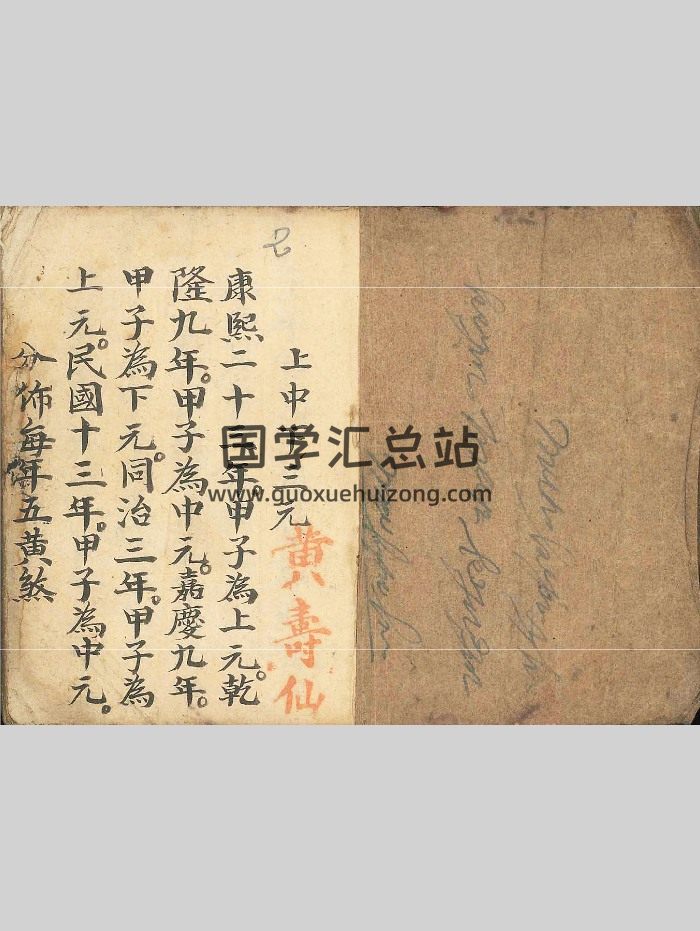 上中下三元
黄壽仙
康熙二十三年甲子為上元。乾
隆九年。甲子為中元。嘉慶九年。
甲子為下元。同治三年。甲子為
上元。民國十三年。甲子為中元。
分佈每年五黃煞
国学汇总站
www.guoxuehuizong.com